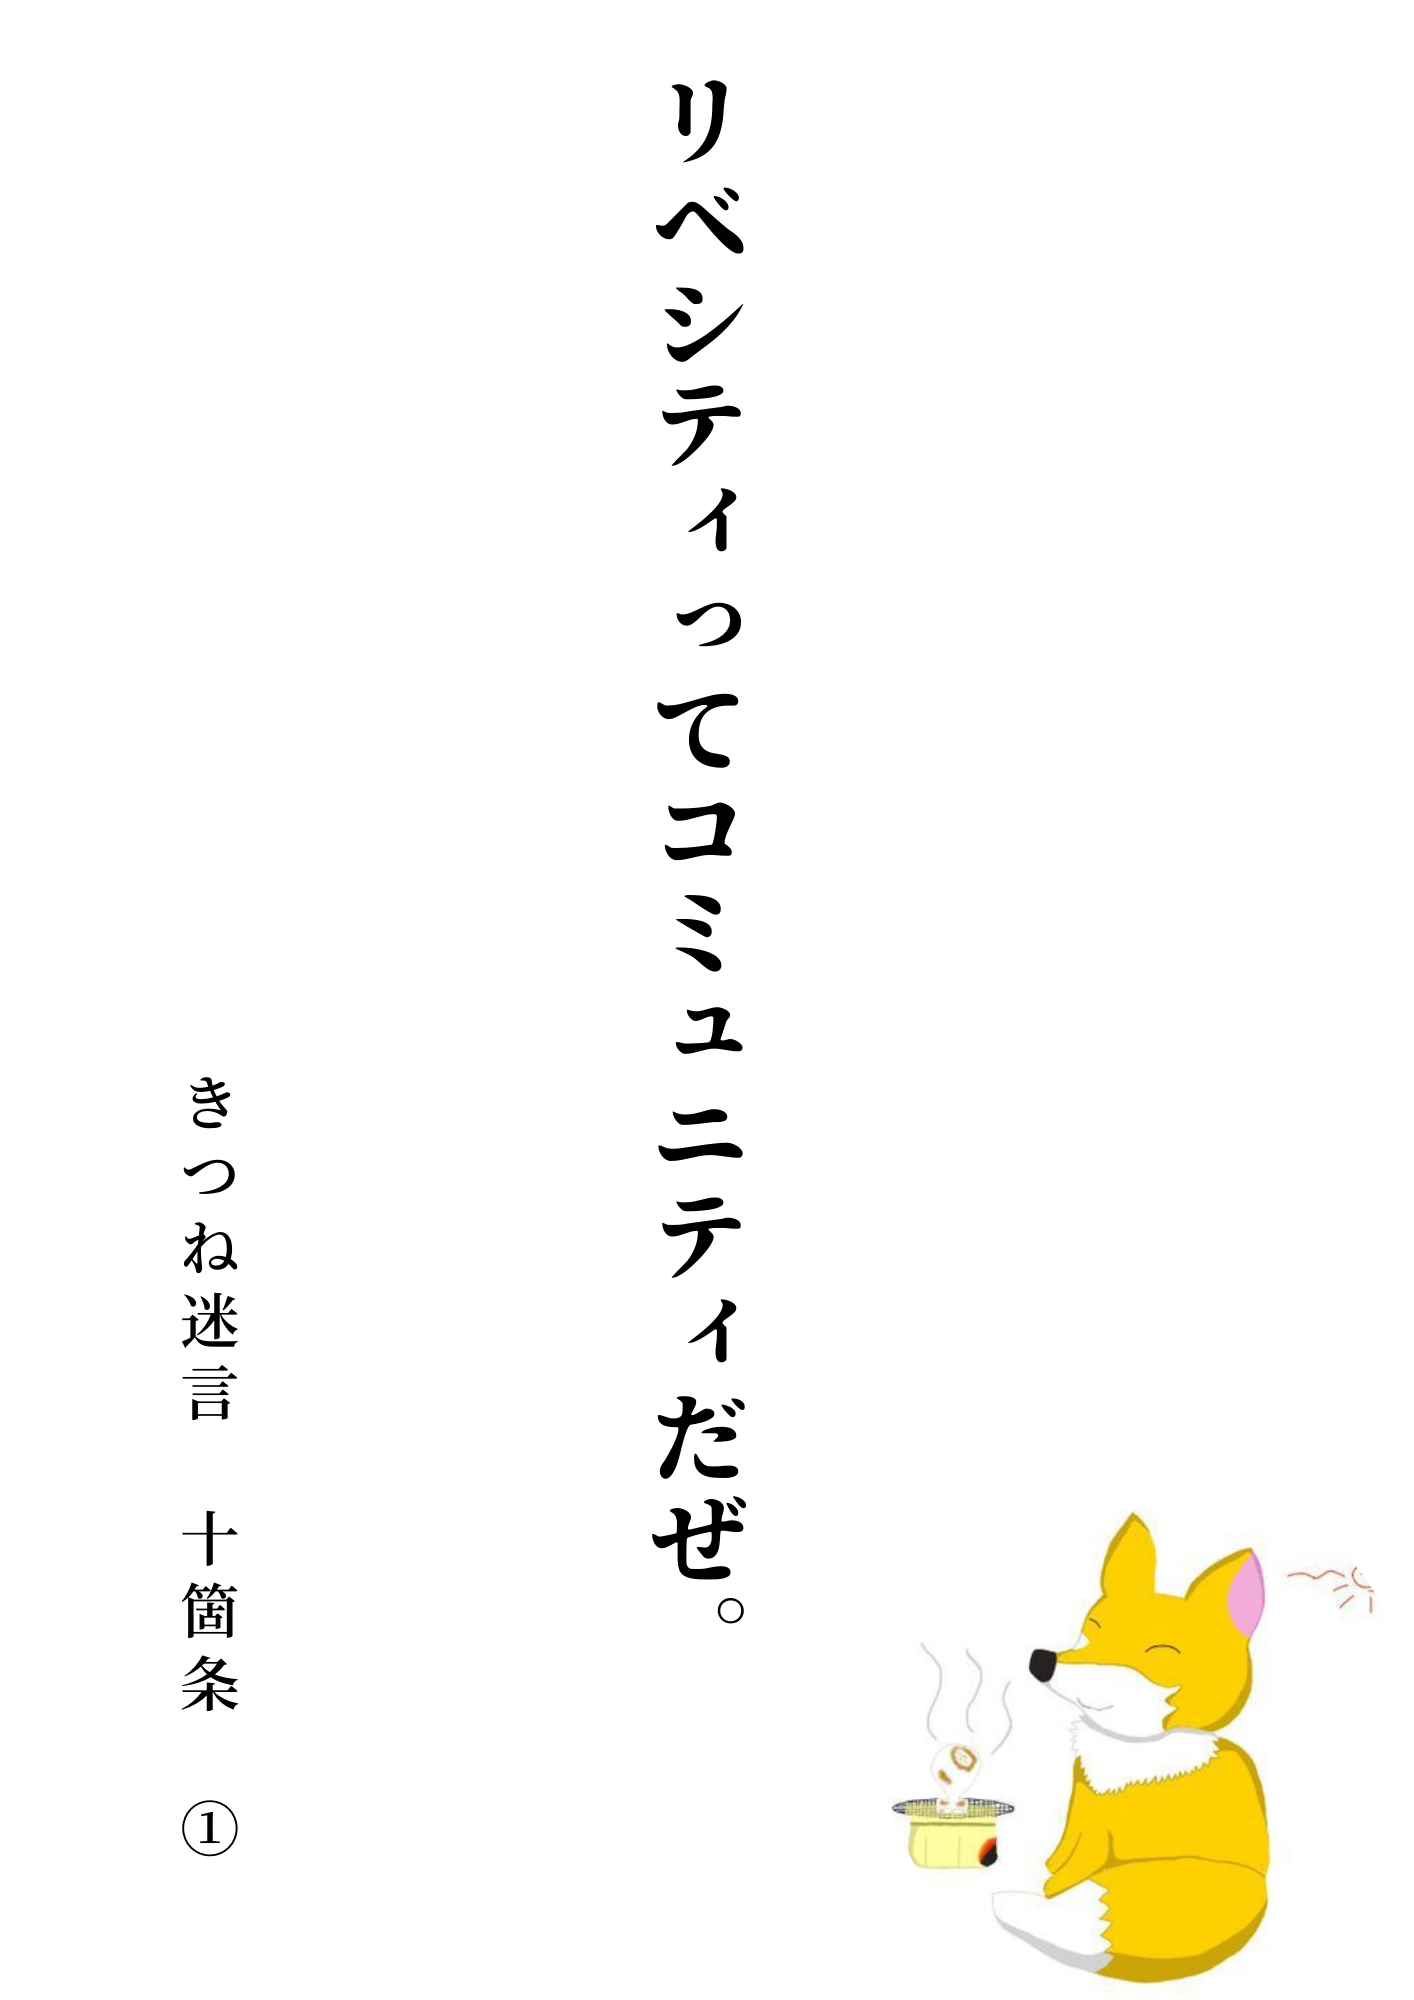 リベシティってコミュニティだぜ。
きつね迷言　十箇条　①